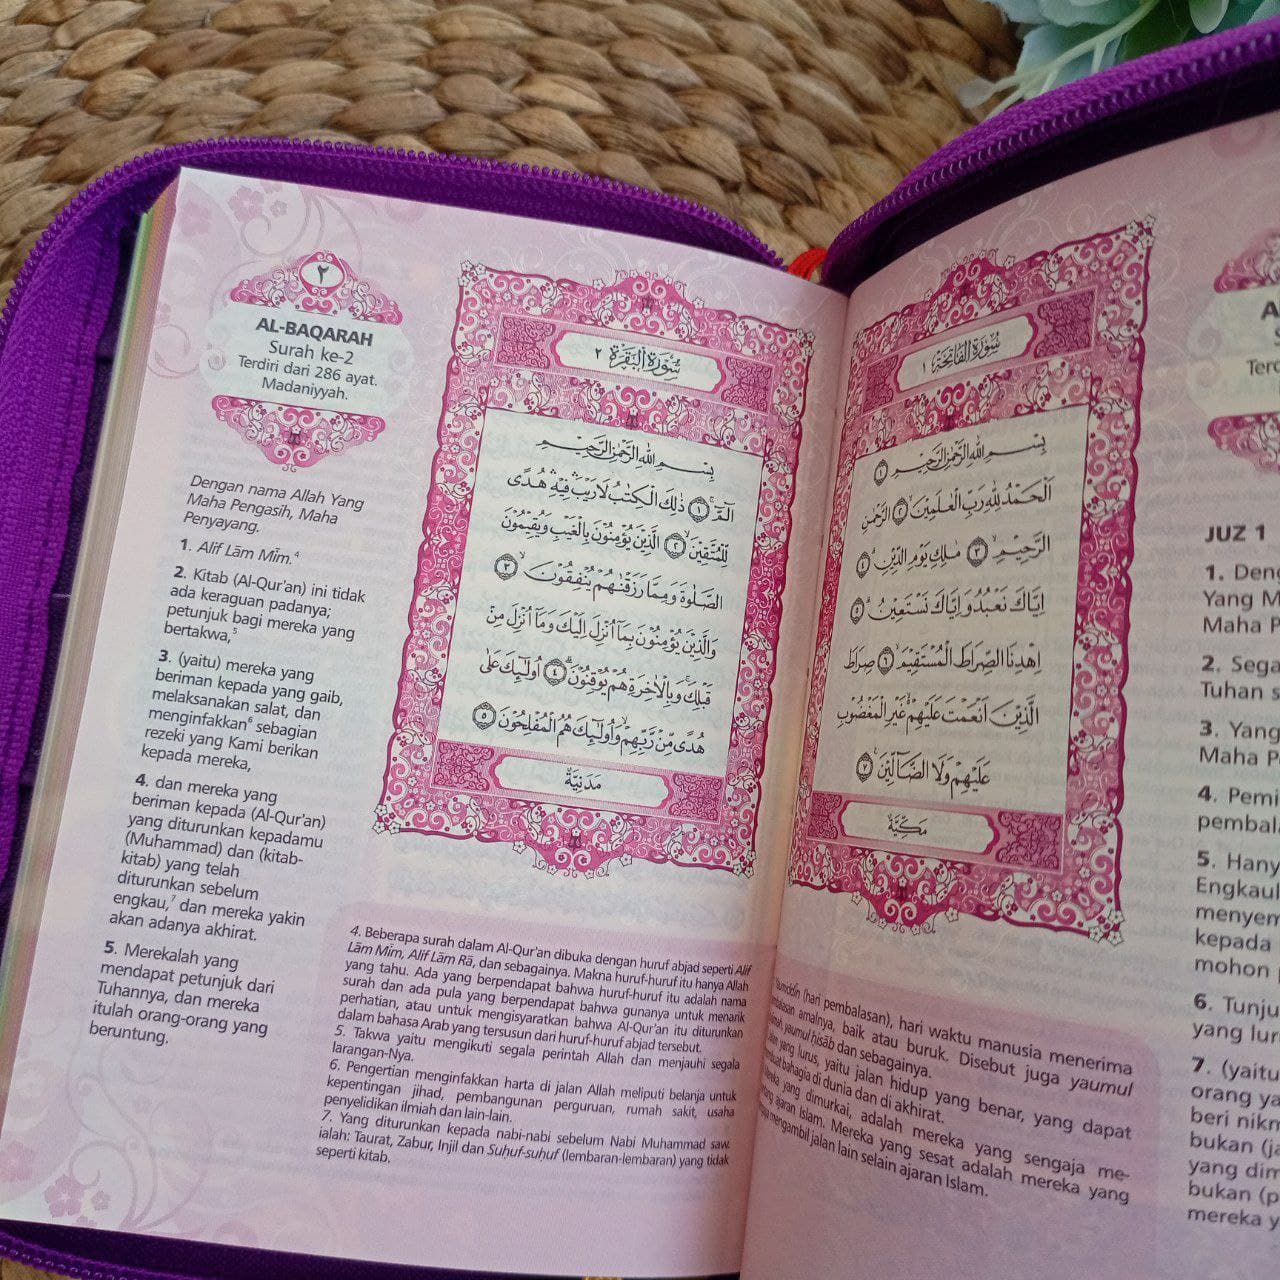 ٢
AL-BAQARAH
Surah ke-2
Terdiri dari 286 ayat.
Madaniyyah.
Dengan nama Allah Yang
Maha Pengasih, Maha
Penyayang.
1. Alif Lām Mīm.⁴
2. Kitab (Al-Qur'an) ini tidak
ada keraguan padanya;
petunjuk bagi mereka yang
bertakwa,⁵
3. (yaitu) mereka yang
beriman kepada yang gaib,
melaksanakan salat, dan
menginfakkan⁶ sebagian
rezeki yang Kami berikan
kepada mereka,
4. dan mereka yang
beriman kepada (Al-Qur'an)
yang diturunkan kepadamu
(Muhammad) dan (kitab-
kitab) yang telah
diturunkan sebelum
engkau,⁷ dan mereka yakin
akan adanya akhirat.
5. Merekalah yang
mendapat petunjuk dari
Tuhannya, dan mereka
itulah orang-orang yang
beruntung.
سُوْرَةُ الْبَقَرَةِ ٢
بِسْمِ اللّٰهِ الرَّحْمٰنِ الرَّحِيْمِ
الۤمّۤ ۚ ١ ذٰلِكَ الْكِتٰبُ لَا رَيْبَ ۛ فِيْهِ ۛ هُدًى
لِّلْمُتَّقِيْنَۙ ٢ الَّذِيْنَ يُؤْمِنُوْنَ بِالْغَيْبِ وَيُقِيْمُوْنَ
الصَّلٰوةَ وَمِمَّا رَزَقْنٰهُمْ يُنْفِقُوْنَ ۙ ٣
وَالَّذِيْنَ يُؤْمِنُوْنَ بِمَآ اُنْزِلَ اِلَيْكَ وَمَآ اُنْزِلَ مِنْ
قَبْلِكَ ۚ وَبِالْاٰخِرَةِ هُمْ يُوْقِنُوْنَۗ ٤ اُولٰۤىِٕكَ عَلٰى
هُدًى مِّنْ رَّبِّهِمْ ۙ وَاُولٰۤىِٕكَ هُمُ الْمُفْلِحُوْنَ ٥
مَدَنِيَّةٌ
4. Beberapa surah dalam Al-Qur'an dibuka dengan huruf abjad seperti Alif
Lām Mīm, Alif Lām Rā, dan sebagainya. Makna huruf-huruf itu hanya Allah
yang tahu. Ada yang berpendapat bahwa huruf-huruf itu adalah nama
surah dan ada pula yang berpendapat bahwa gunanya untuk menarik
perhatian, atau untuk mengisyaratkan bahwa Al-Qur'an itu diturunkan
dalam bahasa Arab yang tersusun dari huruf-huruf abjad tersebut.
5. Takwa yaitu mengikuti segala perintah Allah dan menjauhi segala
larangan-Nya.
6. Pengertian menginfakkan harta di jalan Allah meliputi belanja untuk
kepentingan jihad, pembangunan perguruan, rumah sakit, usaha
penyelidikan ilmiah dan lain-lain.
7. Yang diturunkan kepada nabi-nabi sebelum Nabi Muhammad saw.
ialah: Taurat, Zabur, Injil dan Suḥuf-suḥuf (lembaran-lembaran) yang tidak
seperti kitab.
سُوْرَةُ الْفَاتِحَةِ ١
بِسْمِ اللّٰهِ الرَّحْمٰنِ الرَّحِيْمِ ١
اَلْحَمْدُ لِلّٰهِ رَبِّ الْعٰلَمِيْنَۙ ٢ الرَّحْمٰنِ
الرَّحِيْمِۙ ٣ مٰلِكِ يَوْمِ الدِّيْنِۗ ٤
اِيَّاكَ نَعْبُدُ وَاِيَّاكَ نَسْتَعِيْنُۗ ٥
اِهْدِنَا الصِّرَاطَ الْمُسْتَقِيْمَۙ ٦ صِرَاطَ
الَّذِيْنَ اَنْعَمْتَ عَلَيْهِمْ ەۙ غَيْرِ الْمَغْضُوْبِ
عَلَيْهِمْ وَلَا الضَّاۤلِّيْنَ ٧
مَكِّيَّةٌ
(hari pembalasan), hari waktu manusia menerima
amalnya, baik atau buruk. Disebut juga yaumul
yaumul ḥisāb dan sebagainya.
yang lurus, yaitu jalan hidup yang benar, yang dapat
bahagia di dunia dan di akhirat.
yang dimurkai, adalah mereka yang sengaja me-
ajaran Islam. Mereka yang sesat adalah mereka yang
mengambil jalan lain selain ajaran Islam.
JUZ 1
1.
Yang M
Maha P
2.
Tuhan s
3. Yang
Maha P
4.
pembala
5. Hanya
kepada
mohon
6.
yang lur
7. (yaitu
orang ya
beri nikm
bukan (ja
yang dim
bukan (p
mereka y